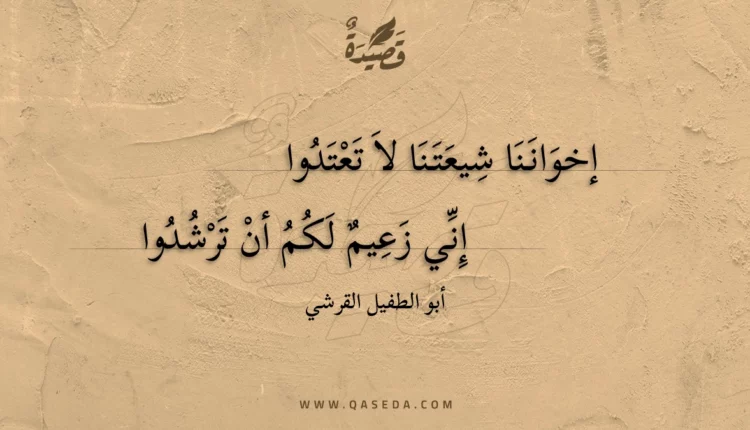 قَصِيدَةٌ
إخوَانَنَا شِيعَتَنَا لاَ تَعْتَدُوا
إِنِّي زَعِيمٌ لَكُمُ أنْ تَرْشُدُوا
أبو الطفيل القرشي
WWW.QASEDA.COM